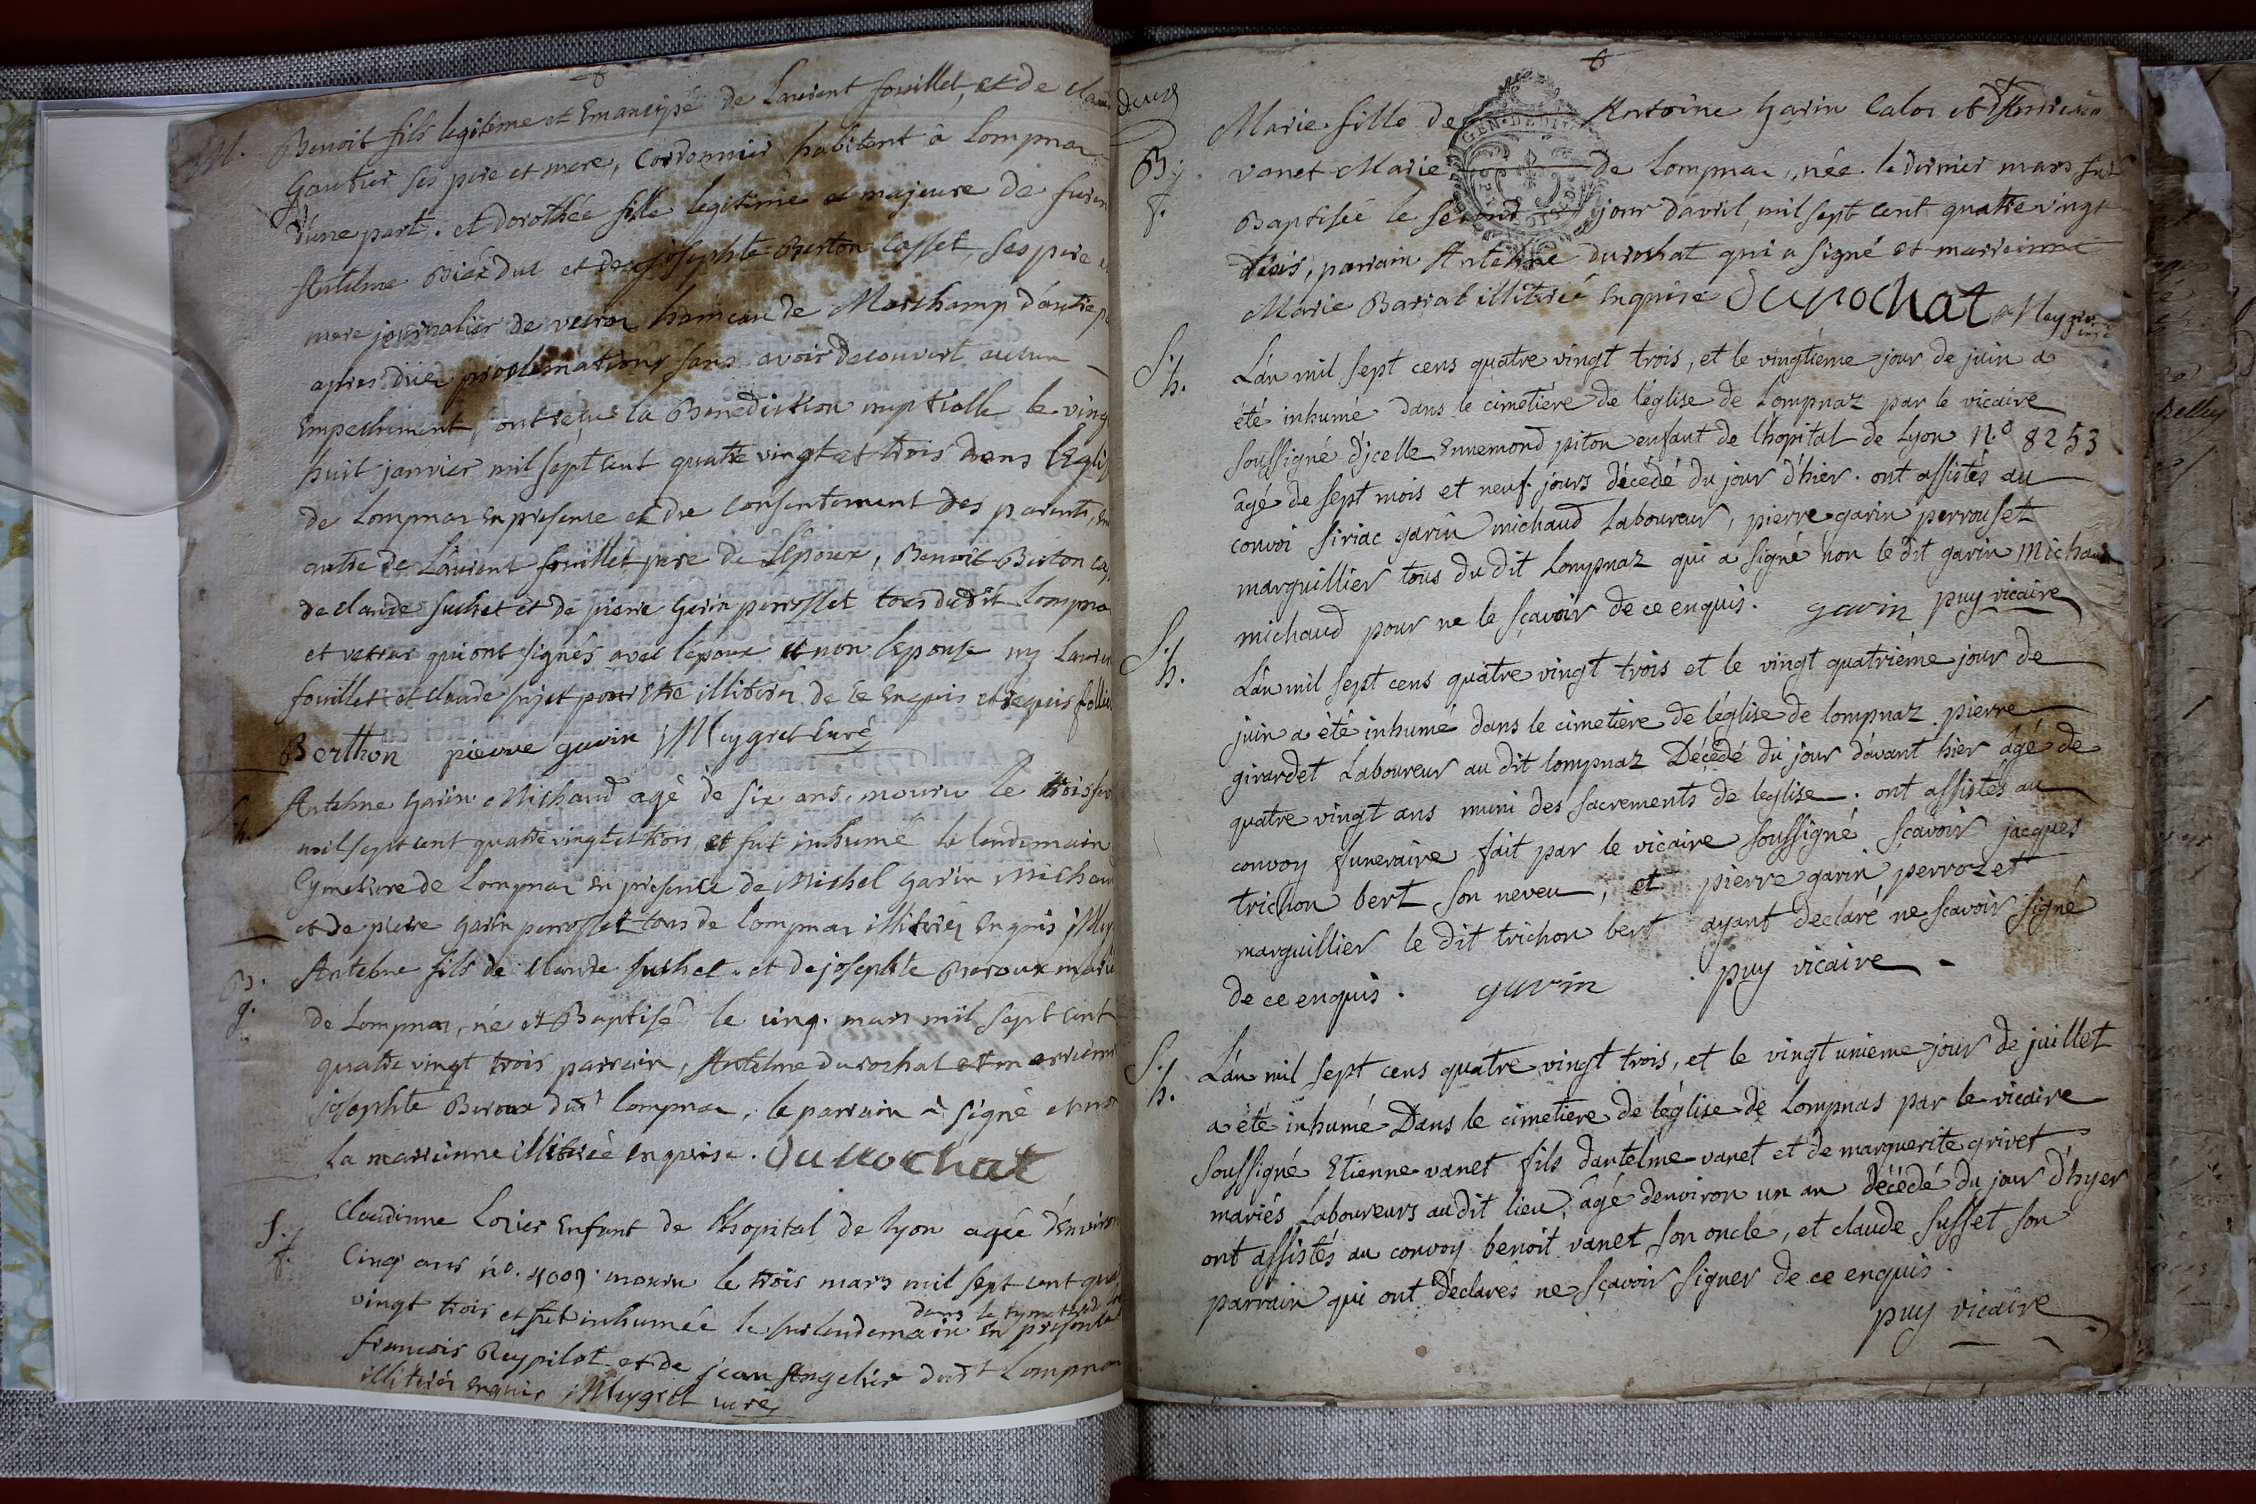 Benoit fils legitime et Emancipé de Laurent fouillet, et de
Gautier ses pere et mere, Cordonnier habitant a Lompnaz
d'une part. et Dorothée fille legitime et majeure de
Antelme et de josephte Berton Casset, ses pere
mere journalier de hameau de Marchamp d'autre
apres proclamations sans avoir decouvert aucun
Empechement, ont reçu la Benediction nuptialle le
huit janvier mil sept cent quatre vingt et trois dans l'Eglise
de Lompnaz en presence et du Consentement des parents,
autre de Laurent fouillet pere de l'Epoux, Benoit Berton
de claude suchet et de pierre Garin perrosset tous dudit
et qui ont signés avec l'epoux et non l'epouse ny
fouillet et claude pour Etre illitéré de ce Enquis et requis
Berthon pierre gavin Meygret Curé
h.
Antelme Garin Michaud agé de six ans, mouru le trois
mil sept cent quatre vingt et trois et fut inhumé le lendemain
Cymetiere de Lompnaz en presence de Michel Garin Michaud
et de pierre Garin perrosset tous de Lompnaz illitérés Enquis
B.
g.
Antelme fils de Claude suchet et de josephte Beroux
de Lompnaz, né et Baptisé le cinq mars mil sept cent
quatre vingt trois parrain, Antelme durochat et marrienne
josephte Beroux dud^t Lompnaz, le parrain a signé et non
La marrienne illitérée enquise. Durochat
S.
f.
Claudinne Lozier Enfant de l'hopital de lyon agée d'Environ
Cinq ans n°. 4009. mouru le trois mars mil sept cent
vingt trois et fut inhumée le surlendemain dans le
en
francois Reypilot et de jean Angelier dud^t Lompnaz
illitérés enquis Meygret curé
B.
f.
Marie fille de Antoine Garin Calos et
vanet Marie de Lompnaz, née le dernier mars fut
Baptisée le second jour d'avril mil sept cent quatre vingt
trois, parrain Antelme durochat qui a signé et marrienne
Marie Barral illitérée Enquise Durochat
S.
h.
L'an mil sept cens quatre vingt trois, et le vingtieme jour de juin a
été inhumé dans le cimetiere de l'église de Lompnaz par le vicaire
soussigné d'jcelle Ennemond piton enfant de l'hopital de Lyon n.° 8253
âgé de sept mois et neuf jours décédé du jour d'hier. ont assistés au
convoi siriac garin michaud Laboureur, pierre garin perrouset
marguillier tous du dit Lompnaz qui a signé non le dit garin michaud
michaud pour ne le sçavoir de ce enquis. gavin puy vicaire
S.
h.
L'an mil sept cens quatre vingt trois et le vingt quatrième jour de
juin a été inhumé dans le cimetiere de l'église de lompnaz pierre
girardet Laboureur au dit lompnaz Décédé du jour d'avant hier âgé de
quatre vingt ans muni des sacrements de leglise. ont assistés au
convoy funeraire fait par le vicaire soussigné sçavoir jacques
trichon bert son neveu, et pierre garin perrozet
marguillier le dit trichon bert ayant declaré ne scavoir signé
de ce enquis. gavin puy vicaire
S.
h.
L'an mil sept cens quatre vingt trois, et le vingt unieme jour de juillet
a été inhumé Dans le cimetiere de l'église de Lompnas par le vicaire
soussigné Etienne vanet fils d'antelme vanet et de marguerite grivet
mariés Laboureurs audit lieu, âgé d'environ un an décédé du jour d'hyer
ont assistés au convoy benoit vanet son oncle, et claude susset son
parrain qui ont déclarés ne sçavoir signer de ce enquis.
puy vicaire